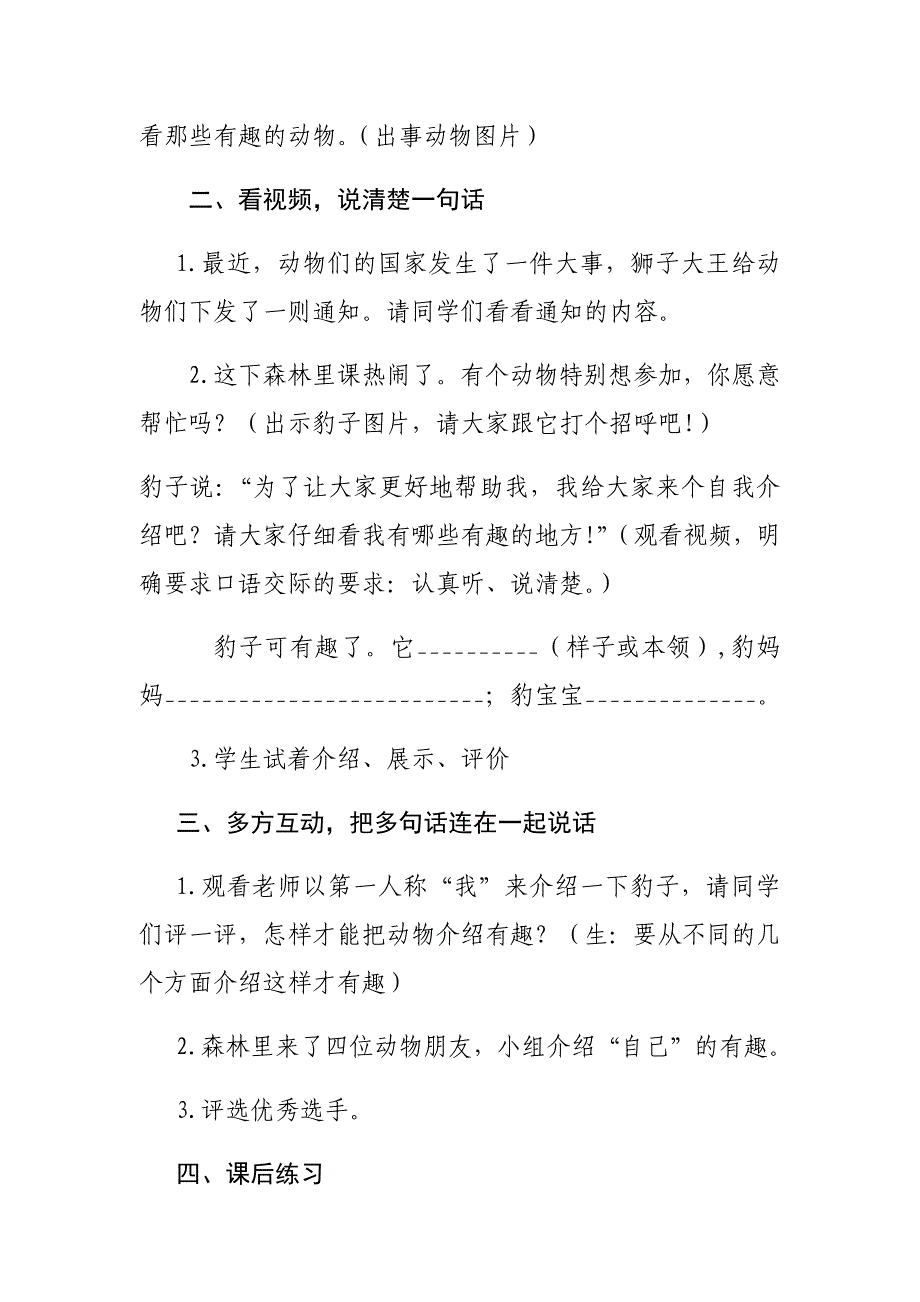 看那些有趣的动物。（出事动物图片）
二、看视频，说清楚一句话
1.最近，动物们的国家发生了一件大事，狮子大王给动
物们下发了一则通知。请同学们看看通知的内容。
2.这下森林里课热闹了。有个动物特别想参加，你愿意
帮忙吗？（出示豹子图片，请大家跟它打个招呼吧！）
豹子说：“为了让大家更好地帮助我，我给大家来个自我介
绍吧？请大家仔细看我有哪些有趣的地方！”（观看视频，明
确要求口语交际的要求：认真听、说清楚。）
豹子可有趣了。它----------（样子或本领）,豹妈
妈--------------------------；豹宝宝--------------。
3.学生试着介绍、展示、评价
三、多方互动，把多句话连在一起说话
1.观看老师以第一人称“我”来介绍一下豹子，请同学
们评一评，怎样才能把动物介绍有趣？（生：要从不同的几
个方面介绍这样才有趣）
2.森林里来了四位动物朋友，小组介绍“自己”的有趣。
3.评选优秀选手。
四、课后练习